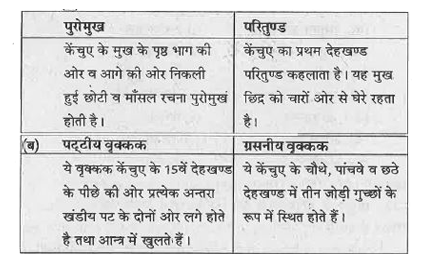 पुरोमुख परितुण्ड
केंचुए के मुख के पृष्ठ भाग की
ओर व आगे की ओर निकली
हुई छोटी व माँसल रचना पुरोमुखं
होती है।
केंचुए का प्रथम देहखण्ड
परितुण्ड कहलाता है। यह मुख
छिद्र को चारों ओर से घेरे रहता
है।
(ब) पट्टीय वृक्कक ग्रसनीय वृक्कक
ये वृक्कक केंचुए के 15वें देहखण्ड
के पीछे की ओर प्रत्येक अन्तरा
खंडीय पट के दोनों ओर लगे होते
है तथा आन्त्र में खुलते हैं।
ये केंचुए के चौथे, पांचवे व छठे
देहखण्ड में तीन जोड़ी गुच्छों के
रूप में स्थित होते हैं।